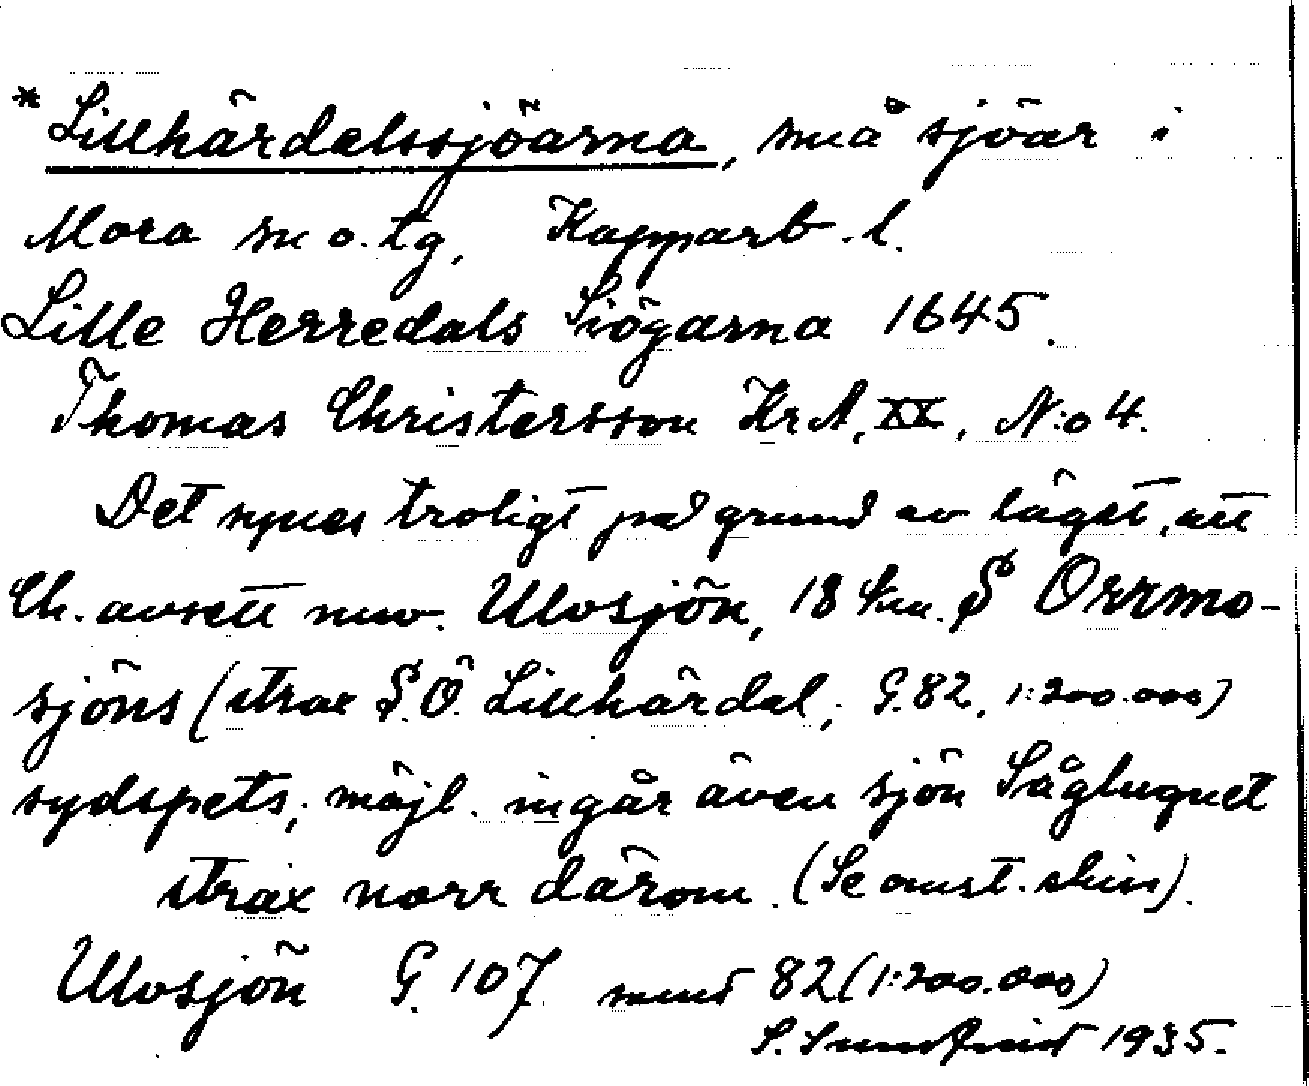 *Lillhärdalssjöarna, små sjöar i
Mora sn o. tg, Kopparb. l.
Lille Herredals Siögarna 1645.
Thomas Christersson KrA, XX, N:o 4.
Det synes troligt på grund av läget, att
Ch. avsett nuv. Ulvsjön, 18 km. S Orrmo-
sjöns (strax S.Ö. Lillhärdal, G.82, 1:200.000)
sydspets; möjl. ingår även sjön Sågluguet
strax norr därom. (Se omst. skiss).
Ulvsjön G. 107 samt 82 (1:200.000)
S. Sundqvist 1935.